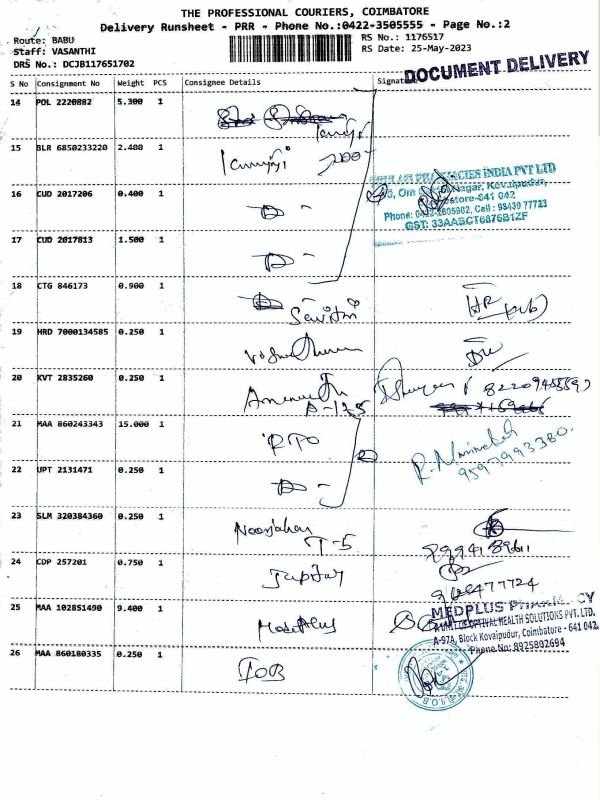 THE PROFESSIONAL COURIERS, COIMBATORE
Delivery Runsheet - PRR - Phone No.:0422-3505555 - Page No.:2
Route: BABU
RS No.: 1176517
Staff: VASANTHI
RS Date: 25-May-2023
DRS No.: DCJB117651702
DOCUMENT DELIVERY
S No Consignment No Weight PCS Consignee Details Signature
14 POL 2220882 5.300 1
15 BLR 6850233220 2.400 1
PHARMACIES INDIA PVT LTD
16 CUD 2017206 0.400 1
Nagar, Kovaipudur,
641 042
Cell : 98439 77723
GST: 33AABCT6876B1ZF
17 CUD 2017813 1.500 1
18 CTG 846173 0.900 1
Savitri
19 HRD 7000134585 0.250 1
20 KVT 2835260 0.250 1
A-125
21 MAA 860243343 15.000 1 RTO
9597993380
22 UPT 2131471 0.250 1
23 SLM 320384360 0.250 1 Noorjahan
T-5
24 CDP 257201 0.750 1 Jupiter
25 MAA 102851490 9.400 1 MedPlus
MEDPLUS PHARMACY
A UNIT OF OPTIVAL HEALTH SOLUTIONS PVT. LTD.
A-97A, Block Kovaipudur, Coimbatore - 641 042
Phone No: 8925802694
26 MAA 860180335 0.250 1 IOB